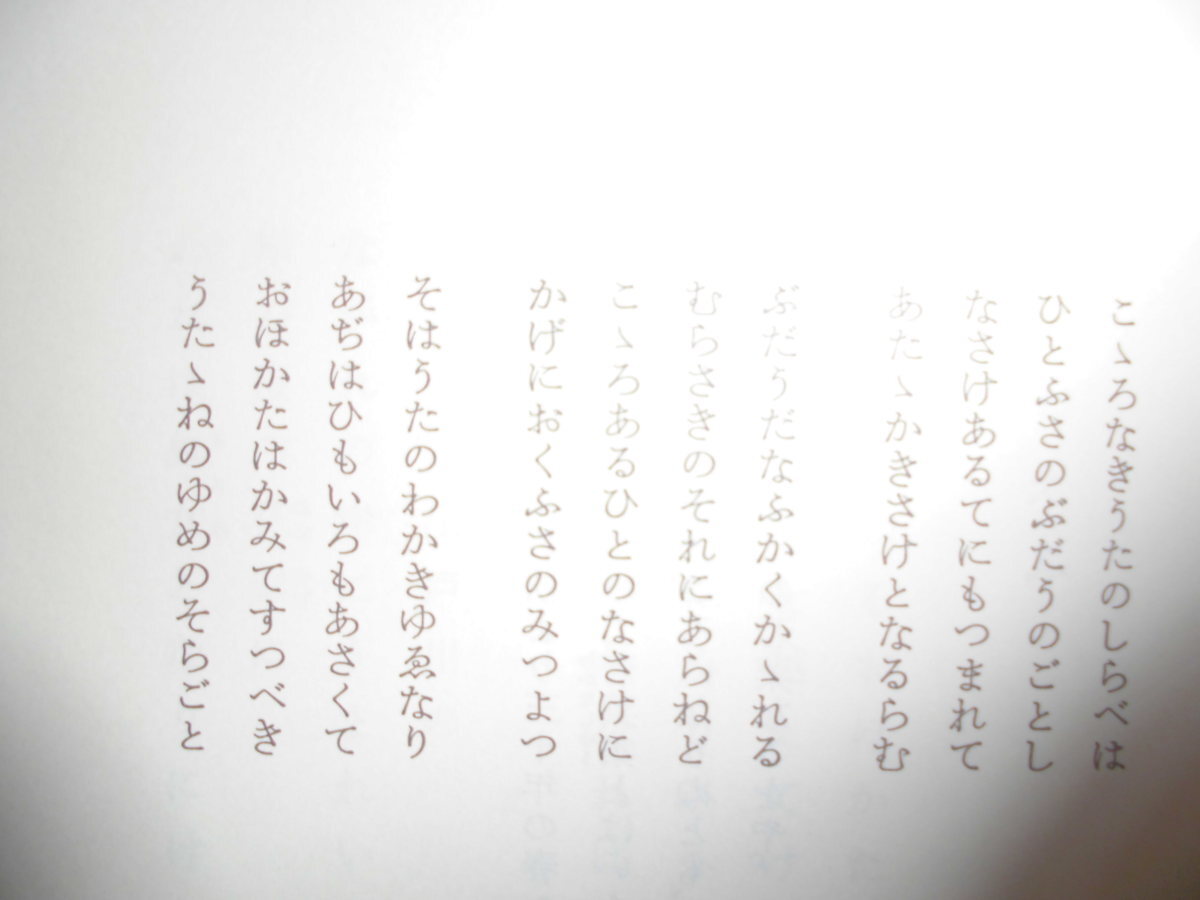 こゝろなきうたのしらべは
ひとふさのぶだうのごとし
なさけあるてにもつまれて
あたゝかきさけとなるらむ
ぶだうだなふかくかゝれる
むらさきのそれにあらねど
こゝろあるひとのなさけに
かげにおくふさのみつよつ
そはうたのわかきゆゑなり
あぢはひもいろもあさくて
おほかたはかみてすつべき
うたゝねのゆめのそらごと